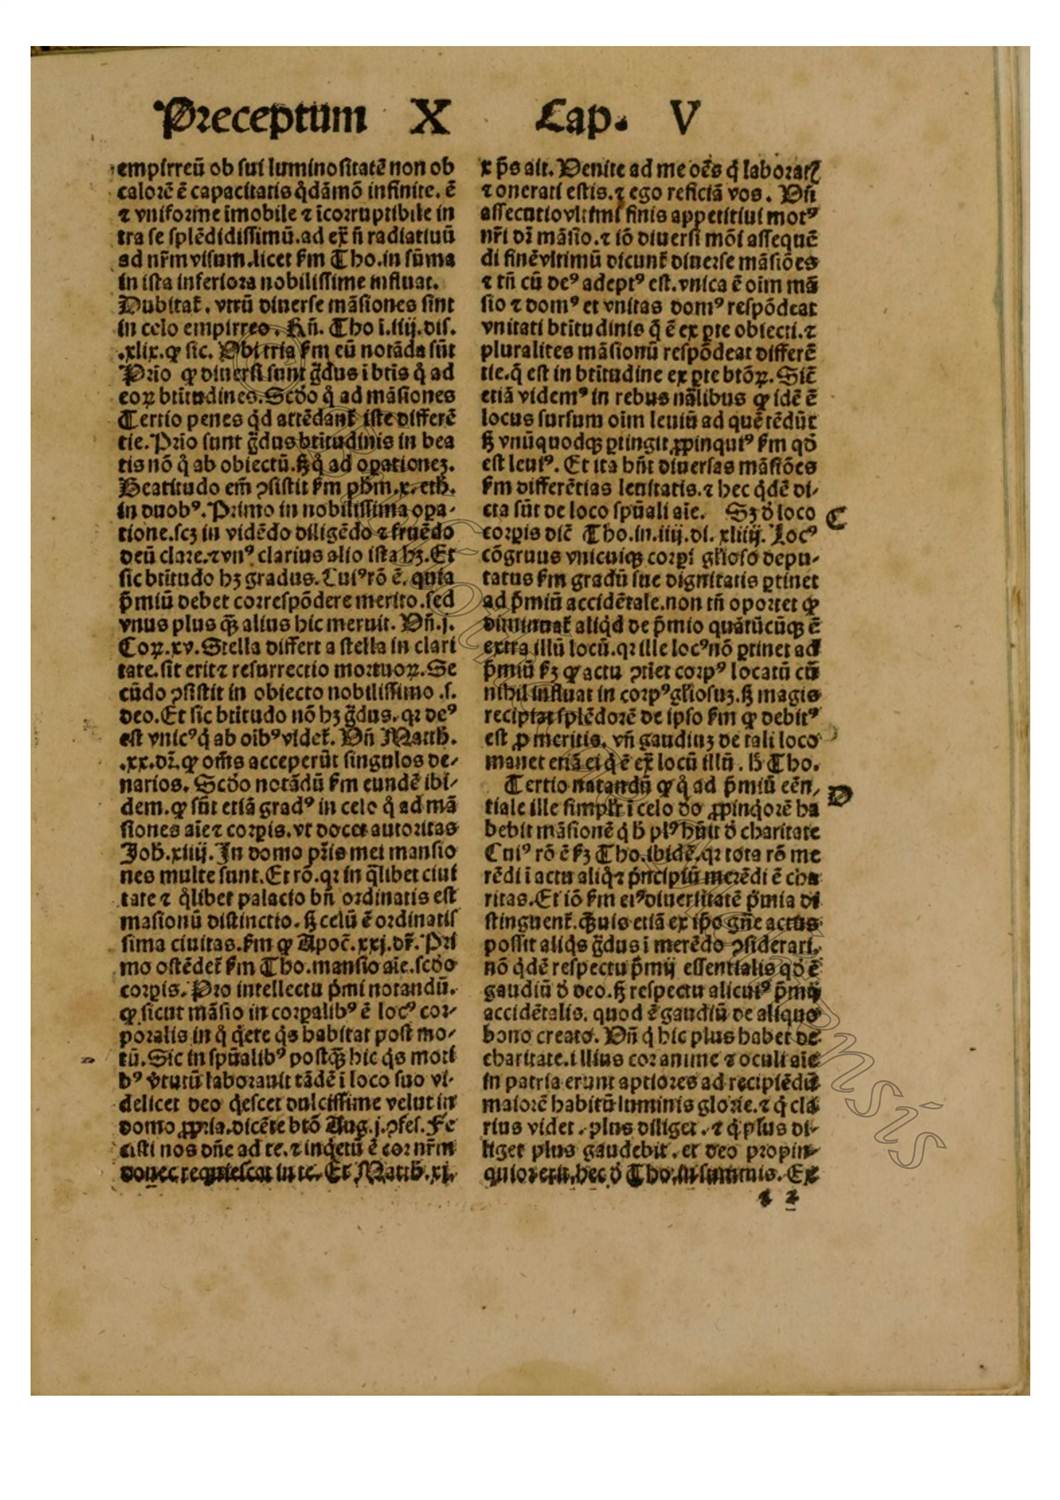 Preceptum X Cap. V
empirreū ob sui luminositatē non ob
calorē ē capacitatis q̄dāmō infinite. ē
⁊ vniforme īmobile ⁊ īcorruptibile in
tra se splēdidissimū. ad ex̄ n̄ radiatiuū
ad nr̄m visum. licet ẜm Tho. in sūma
in ista inferiora nobilissime influat.
Dubitat᷑. vtrū diuerse māsiones sint
in celo empirreo. Rn̄. Tho i. iiij. dis.
.xlix. ꝙ sic. Vbi tria ẜm eū notāda sūt
Prīo ꝙ diuersi sunt gᷓdus ī btīs qͣ ad
eoꝝ btītudines. Scd̄o qͣ ad māsiones
Tertio penes qͥd attēdant᷑ iste differē
tie. Prīo sunt gᷓdus btītudinis in bea
tis nō qͣ ab obiectū. ẜꝫ qͣ ad oꝑationeꝫ.
Beatitudo em̄ ↄsistit ẜm pħm. x. eth.
in duobꝰ. Primo in nobilissima oꝑa-
tione. scꝫ in vidēdo diligēdo ⁊ fruēdo
deū clare. ⁊ vnꝰ clarius alio ista hꝫ. Et
sic btītudo hꝫ gradus. Cuiꝰ rō ē. quia
p̄miū debet correspōdere merito. sed
vnus plus qͣꝫ alius hic meruit. Vn̄. j.
Coꝝ. xv. Stella differt a stella in clari
tate. sit erit ⁊ resurrectio mortuoꝝ. Se
cūdo ↄsistit in obiecto nobilissimo .s.
deo. Et sic btītudo nō hꝫ gᷓdus. qꝛ deꝰ
est vnicꝰ qͥ ab oībꝰ videt᷑. Vn̄ Matth.
.xx. dꝛ̄. ꝙ om̄s acceperūt singulos de-
narios. Scd̄o notādū ẜm eundē ibi-
dem. ꝙ sūt etiā gradꝰ in celo qͣ ad mā
siones aīe ⁊ corꝑis. vt docet autoritas
Joh̄. xiiij. In domo pr̄is mei mansio
nes multe sunt. Et rō. qꝛ in qͣlibet ciui
tate ⁊ qͦlibet palacio bn̄ ordinatis est
masionū distinctio. ẜꝫ celū ē ordinatis
sima ciuitas. ẜm ꝙ Apoc̄. xxj. dr̄. Pri
mo ostēdet᷑ ẜm Tho. mansio aīe. scd̄o
corꝑis. Pro intellectu p̄mi notandū.
ꝙ sicut māsio in corꝑalibꝰ ē locꝰ cor-
poralis in qͦ qͥete qͥs habitat post mo-
tū. Sic in spūalibꝰ postqͣꝫ hic qͥs moti
bꝰ v̄tutū laborauit tādē ī loco suo vi-
delicet deo qͥescet dulcissime velut in
domo ꝓpria. dicēte btō Aug. j. ↄfes. Fe
cisti nos dn̄e ad te. ⁊ inqͥetū ē cor nr̄m
donec requiescat in te. Et Matth. xj.
x p̄s ait. Venite ad me oēs qͥ laborat᷑
⁊ onerati estis. ⁊ ego reficiā vos. Vn̄
assecutio vltimi finis appetitiui motꝰ
nr̄i dꝛ̄ māsio. ⁊ iō diuersi mōi assequē
di finē vltimū dicunt᷑ diuerse māsiōes
⁊ tn̄ cū deꝰ adeptꝰ est. vnica ē oīm mā
sio ⁊ domꝰ et vnitas domꝰ respōdeat
vnitati btītudinis q̄ ē ex ꝑte obiecti. ⁊
pluralites māsionū respōdeat differē
tie. q̄ est in btītudine ex ꝑte btōꝝ. Sic̄
etiā videmꝰ in rebus nālibus ꝙ idē ē
locus sursum oīm leuiū ad quē tēdūt
ẜꝫ vnūquodqꝫ ꝑtingit ꝓpinquiꝰ ẜm qd̄
est leuiꝰ. Et ita hn̄t diuersas māsiōes
ẜm differētias leuitatis. ⁊ hec qͥdē di-
cta sūt de loco spūali aīe. Sꝫ d̓ loco
C
corꝑis dic̄ Tho. in. iiij. di. xliiij. Locꝰ
cōgruus vnicuiqꝫ corꝑi gl̄ioso depu-
tatus ẜm gradū sue dignitatis ꝑtinet
ad p̄miū accidētale. non tn̄ oportet ꝙ
diminuat᷑ aliqͥd de p̄mio quātūcūqꝫ ē
extra illū locū. qꝛ ille locꝰ nō ꝑtinet ad
p̄miū ẜꝫ ꝙ actu ↄtiet corpꝰ locatū cū
nihil influat in corpꝰ gl̄iosuꝫ. ẜꝫ magis
recipiat splēdorē de ipso ẜm ꝙ debitꝰ
est ꝓ meritis. vn̄ gaudiuꝫ de tali loco
manet etiā ei qͥ ē ex̄ locū illū. h̄ Tho.
Tertio notandū ꝙ qͣ ad p̄miū eēn-
D
tiale ille simplr̄ ī celo d̓o ꝓpinqͥorē ha
bebit māsionē qͥ h̄ plꝰ hūit d̓ charitate
Cuiꝰ rō ē ẜꝫ Tho. ibidē. qꝛ tota rō me
rēdi ī actu aliqͦ ⁊ pͥncipiū merēdi ē cha
ritas. Et iō ẜm eiꝰ diuersitatē p̄mia di
stinguent᷑. qͣꝫuis etiā ex ip̄o gn̄e actus
possit aliqͥs gᷓdus ī merēdo ↄsiderari.
nō qͥdē respectu p̄mij essentialis qd̄ ē
gaudiū d̓ deo. ẜꝫ respectu alicuiꝰ p̄mij
accidētalis. quod ē gaudiū de aliquo
bono creato. Vn̄ qͥ hic plus habet de
charitate. illius cor anime ⁊ oculi aīe
in patria erunt aptiores ad recipiēdū
maiorē habitū luminis glorie. ⁊ qͥ cla
rius videt. plus diliget. ⁊ qͥ plus di-
liget plus gaudebit. et deo propin-
quior erit. hec d̓ Tho. in summis. Ex